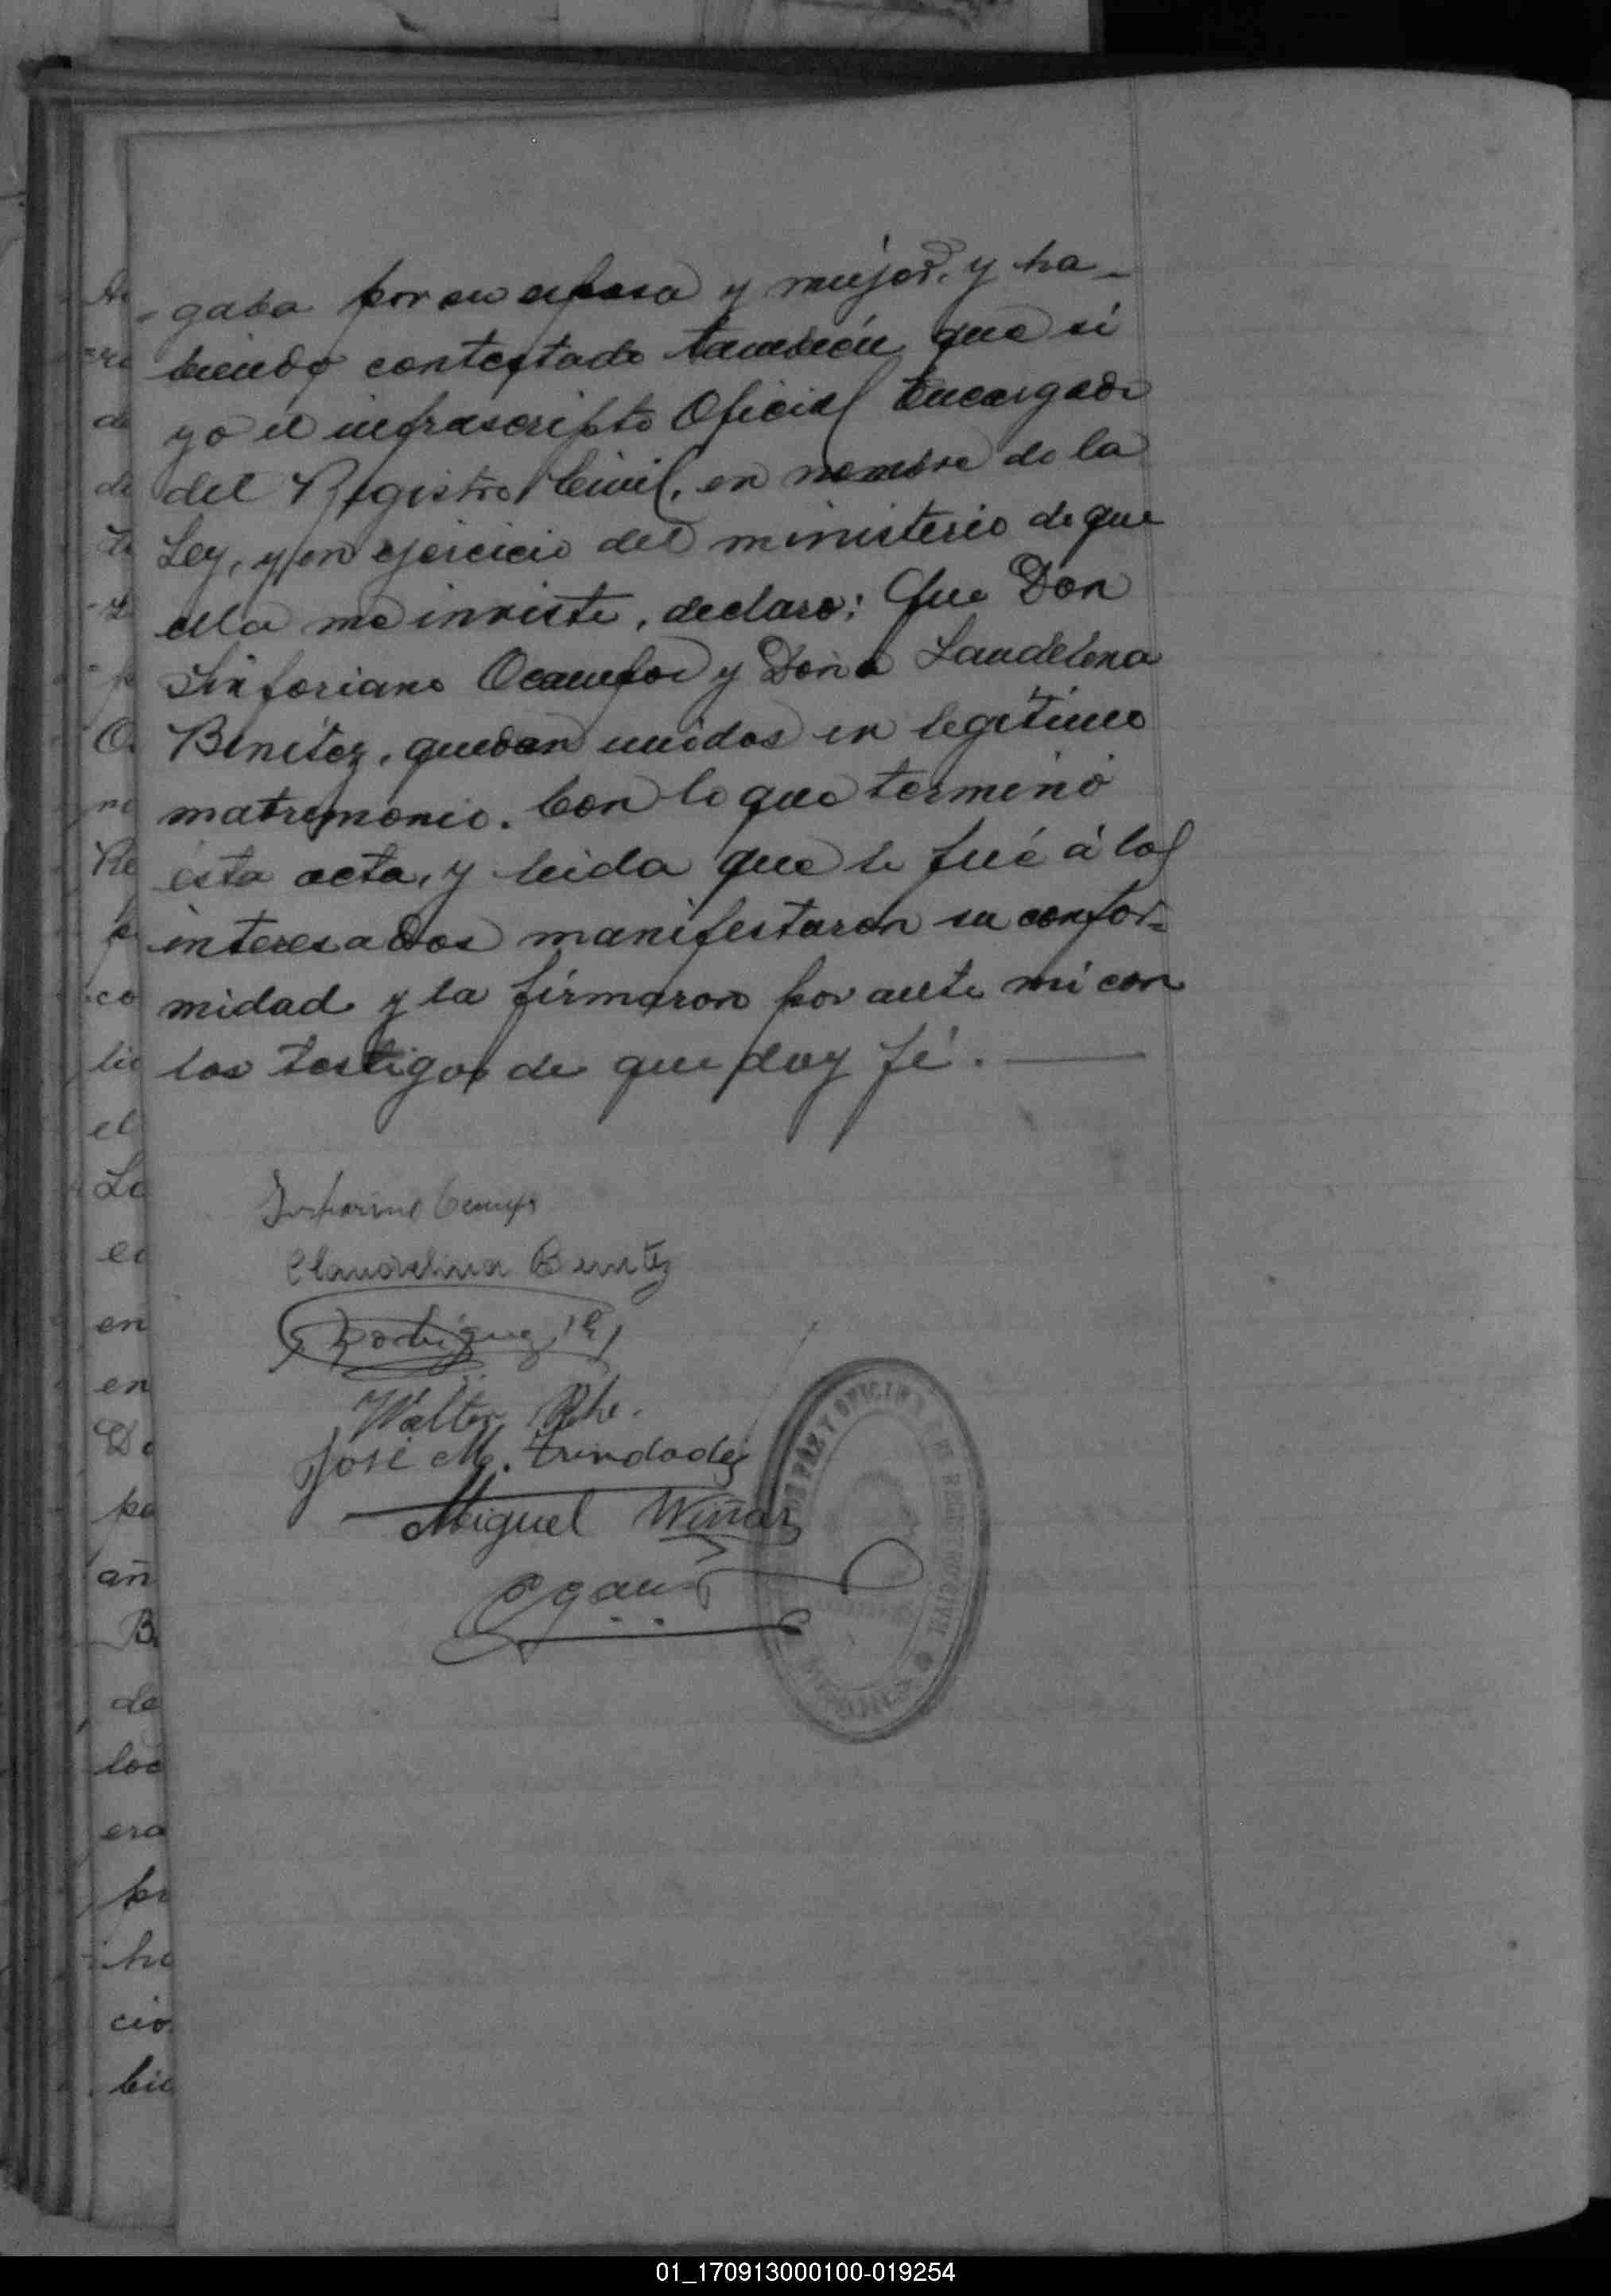 -gaba por su esposa y mujer, y ha-
biendo contestado también que si
yo el infrascripto Oficial Encargado
del Registro Civil, en nombre de la
Ley, y en ejercicio del ministerio de que
ella me inviste, declaro: Que Don
Sinforiano Ocampos y Doña Laudelina
Benítez, quedan unidos en legítimo
matrimonio. Con lo que terminó
ésta acta, y leida que le fué á los
interesados manifestaron su confor-
midad y la firmaron por ante mi con
los testigos de que doy fé.
Benitez
Rodriguez
Walter
José M. Trindade
Miguel
PAZ Y OFICINA DE REGISTRO CIVIL
MISIONES
01_170913000100-019254